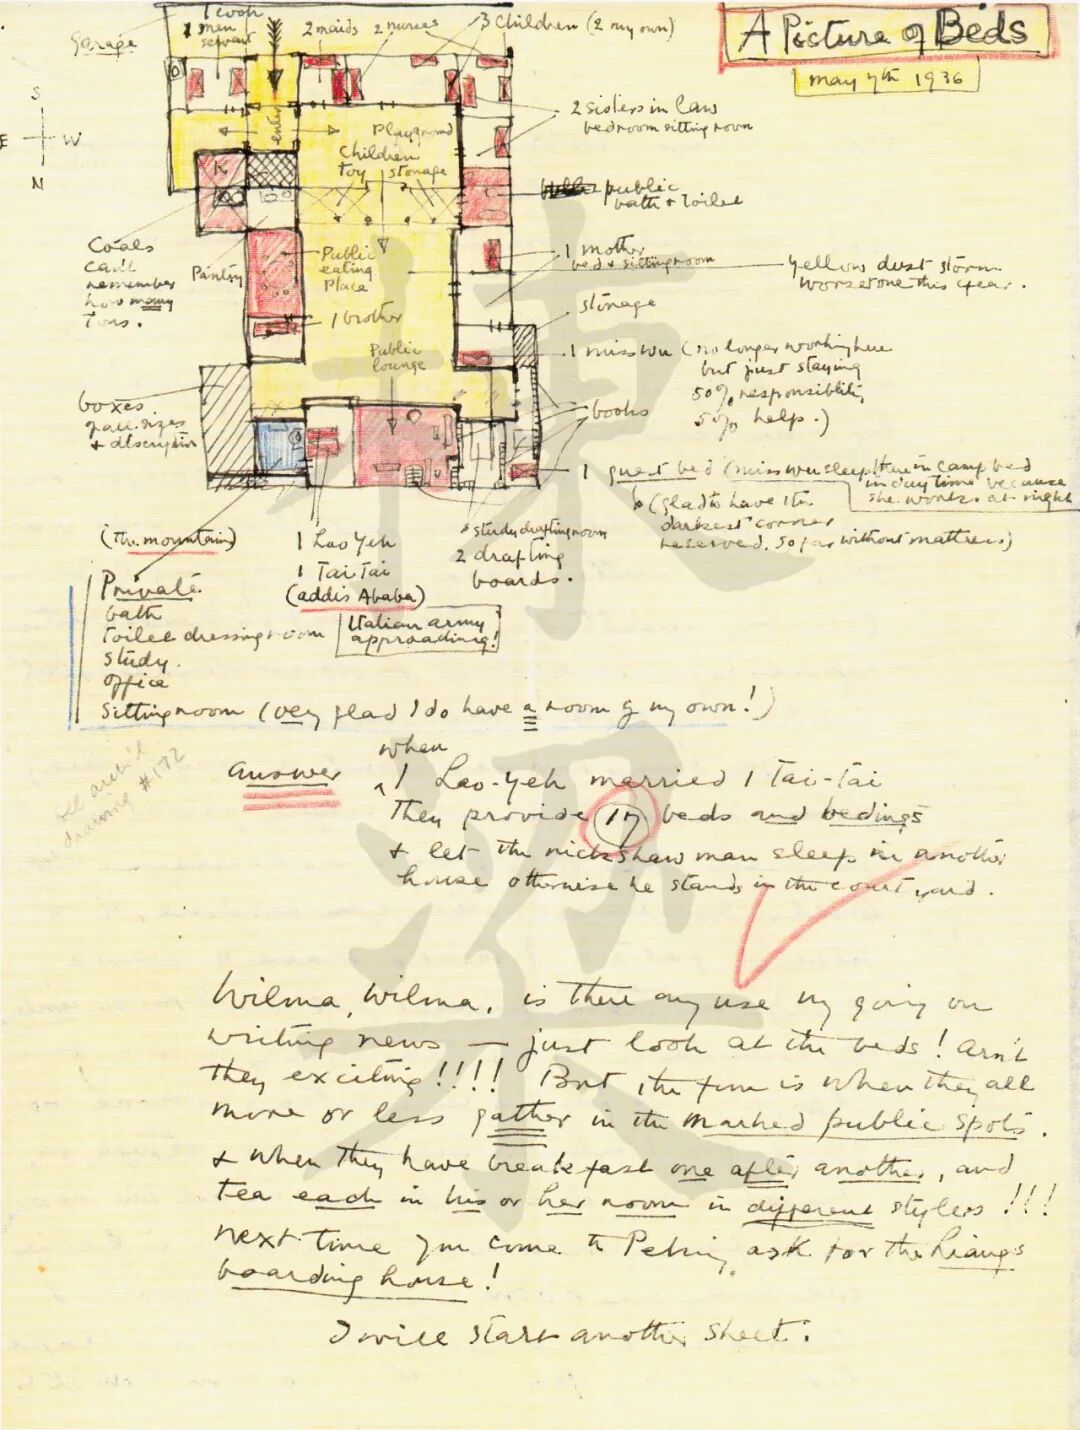 A Picture of Beds
may 7th 1936
garage
1 cook
1 men
servant
2 maids
2 nurses
3 children (2 my own)
S
E
W
N
enter
Playground
Children
toy storage
2 sisters in law
bedroom sitting room
public
bath & toilet
K
Coals
can't
remember
how many
tons.
Pantry
Public
eating
Place
1 mother
bed & sitting room
yellow dust storm
worse one this year.
storage
1 brother
Public
lounge
1 miss wu (no longer working here
but just staying
50% responsiblity
50% help.)
boxes
of all sizes
& description
books
1 guest bed (miss wu sleep there in camp bed
in day time because
she works at night
(glad to have the
darkest corner
reserved. so far without mattress)
(The mountain)
1 Lao Yeh
1 Tai Tai
(addis Ababa)
Italian army
approaching!
study drafting room
2 drafting
boards.
Private
bath
toilet dressing room
study.
office
sitting room (very glad I do have a room of my own!)
see arch'l
drawing #172
answer
when
1 Lao-Yeh married 1 Tai-Tai
They provide 17 beds and bedings
& let the rickshaw man sleep in another
house otherwise he stands in the court yard.
Wilma, Wilma, is there any use my going on
writing news — just look at the beds! arn't
they exciting!!!! But the fun is when they all
more or less gather in the marked public spots.
& when they have breakfast one after another, and
tea each in his or her room in different stylers!!!
next time you come to Peking, ask for the Liangs
boarding house!
I will start another sheet.